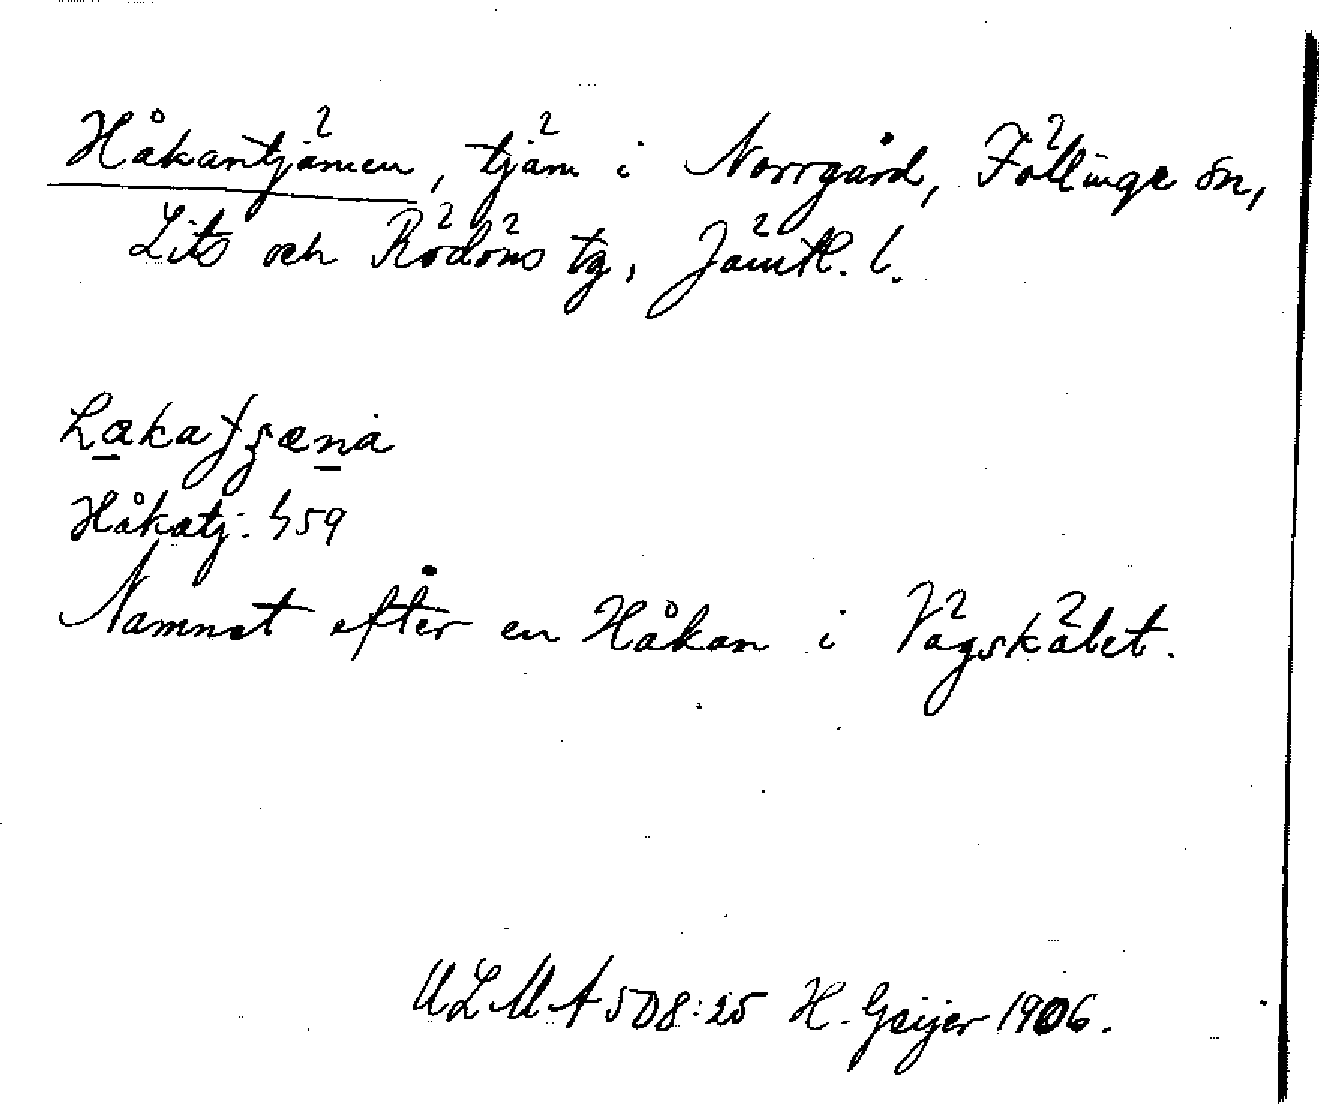 Håkantjärnen, tjärn i Norrgård, Föllinge sn,
Lits och Rödöns tg, Jämtl. l.
Håkatj. 459
Namnet efter en Håkan i Vågskälet.
ULMA 508:25 H. Geijer 1906.